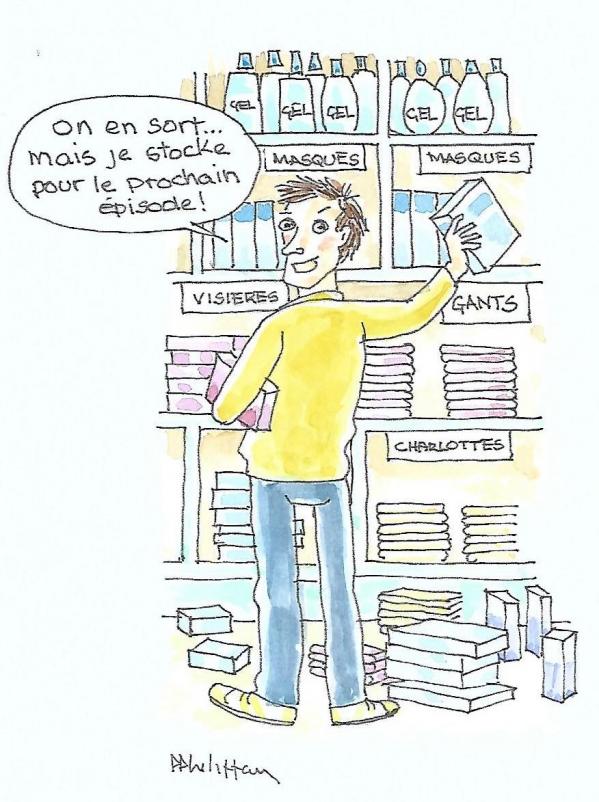 On en sort...
mais je stocke
pour le prochain
épisode!
GEL GEL GEL GEL GEL
MASQUES MASQUES
VISIERES GANTS
CHARLOTTES